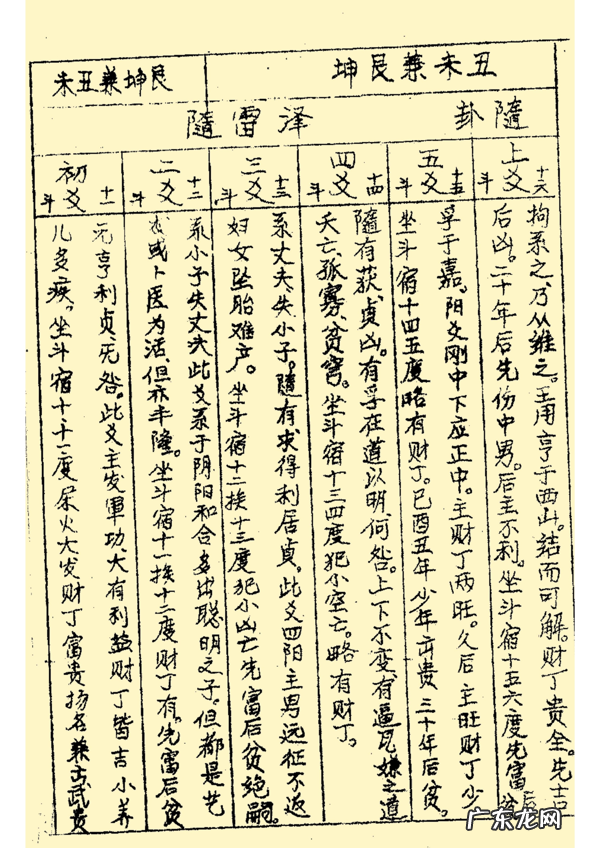 丑未兼艮坤
艮坤兼丑未
隨卦
泽雷隨
上爻
十六
斗
拘系之、乃从维之。王用亨于西山。结而可解。财丁贵全。先吉
后凶。二十年后先伤中男。后主不利。坐斗宿十五六度先富后贫
五爻
十五
斗
孚于嘉。阳爻刚中下应正中。主财丁两旺。久后主旺财丁少
坐斗宿十四五度略有财丁。巳酉丑年少年出贵三十年后贫。
四爻
十四
斗
隨有获、贞凶。有孚在道以明、何咎。上下不变、有逼瓦嫌之道
夭亡、孤寡、贫穷。坐斗宿十三四度犯小空亡。略有财丁。
三爻
十三
斗
系丈夫、失小子。隨有求得利居贞。此爻四阳主男远征不返
妇女坠胎难产。坐斗宿十二挨十三度犯小凶亡先富后贫绝嗣。
二爻
十二
斗
系小子失丈夫此爻系于阴阳和合多出聪明之子。但都是艺
或卜医为活、但亦丰隆。坐斗宿十一挨十二度财丁有。先富后贫
初爻
十一
斗
元亨利贞、无咎。此爻主发軍功、大有利益财丁皆吉小养
儿多疾。坐斗宿十十一度尿火大发财丁富贵扬名兼出武贵
广东龙网